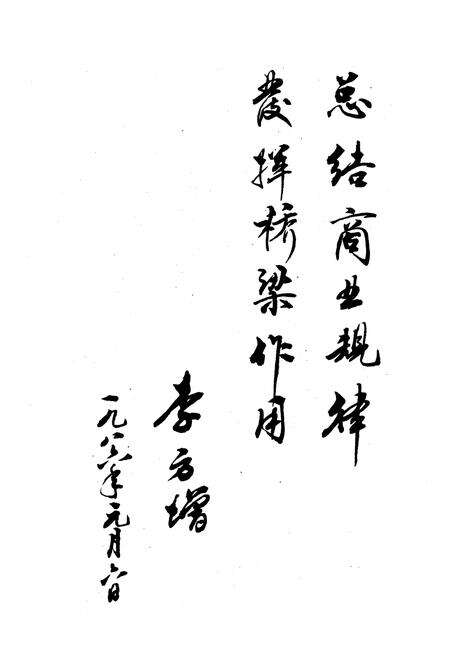 总结商业规律
发挥桥梁作用
李方增
一九八六年元月六日